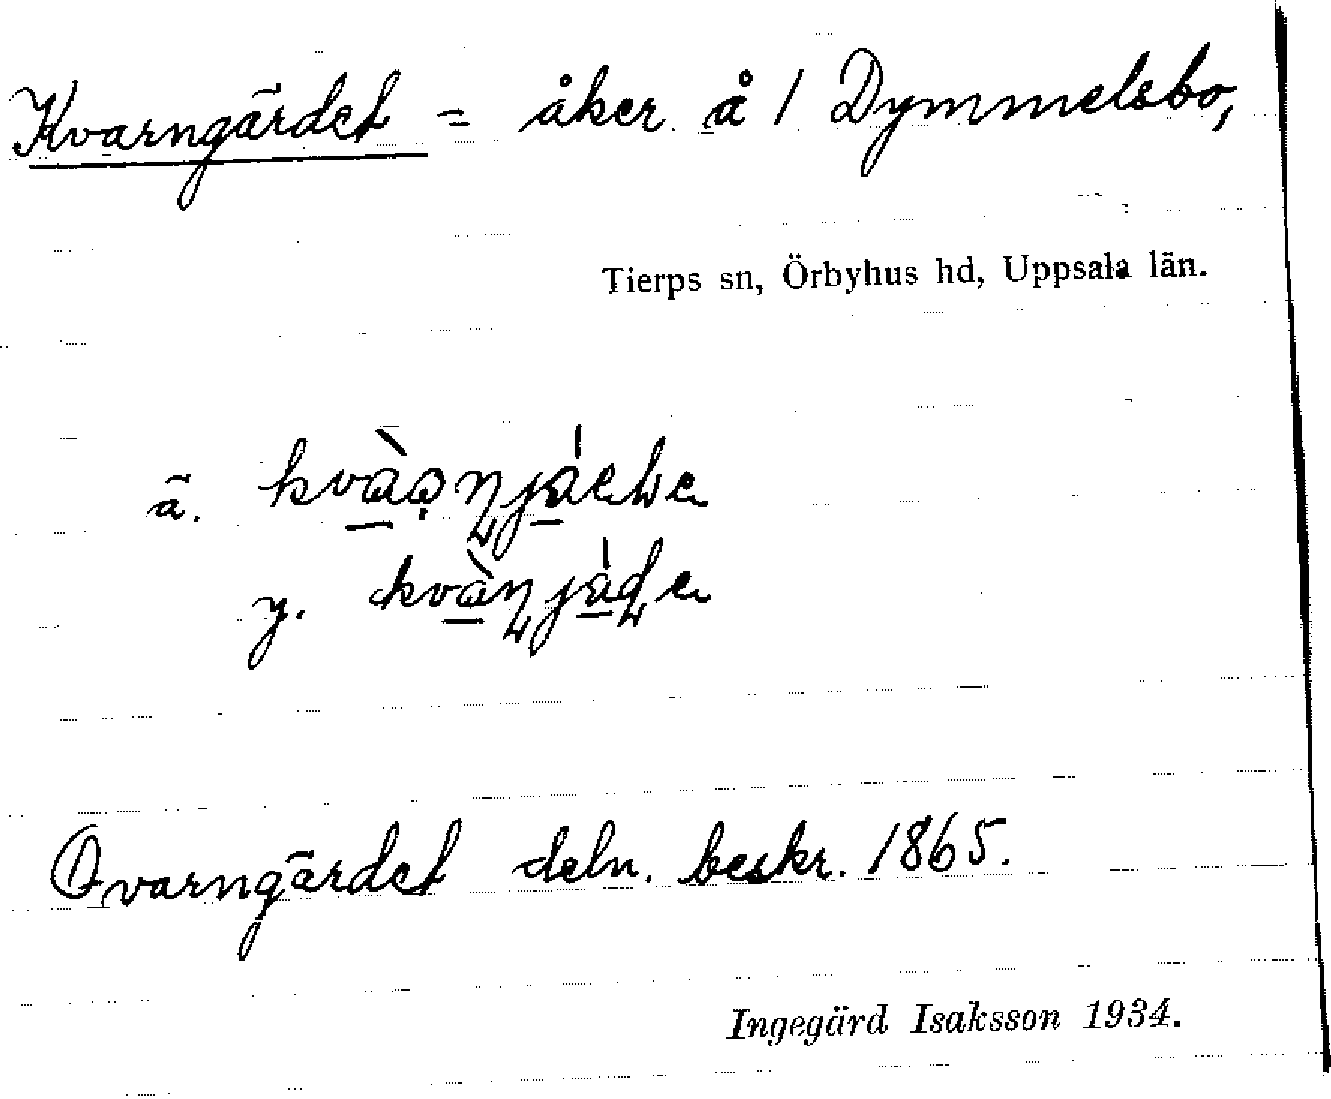 Kvarngärdet = åker å 1 Dymmelsbo,
Tierps sn, Örbyhus hd, Uppsala län.
ä.
y.
Qvarngärdet deln. beskr. 1865.
Ingegärd Isaksson 1934.